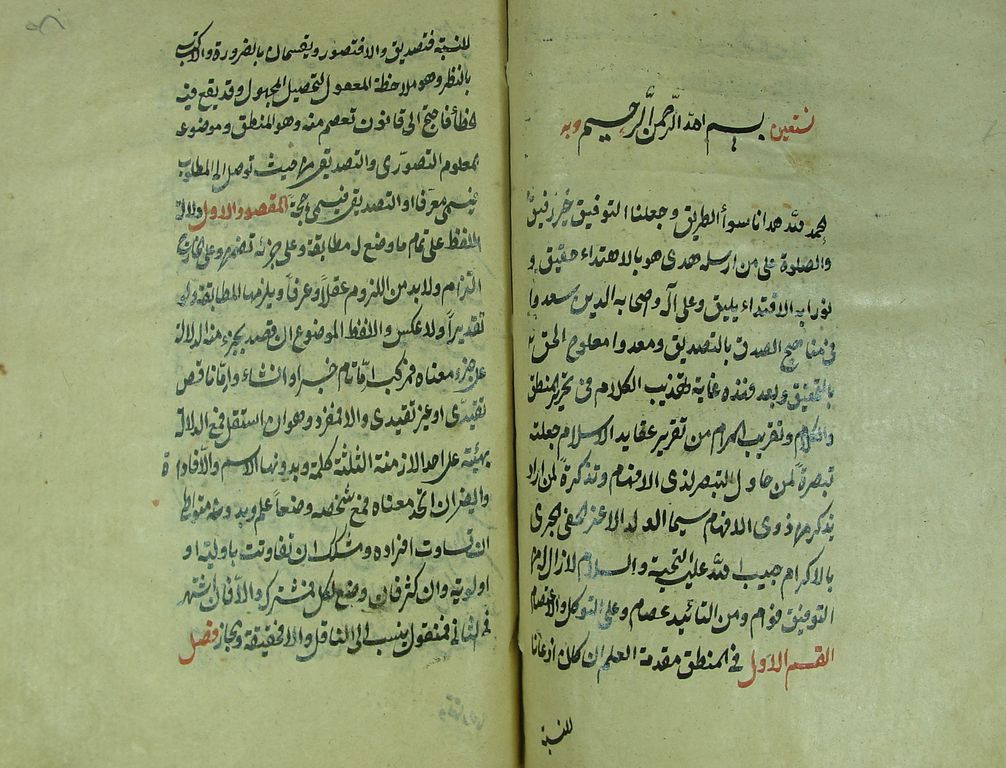 بسم الله الرحمن الرحيم وبه نستعين
الحمد لله هدانا سوأ الطريق وجعل لنا التوفيق خير رفيق
والصلوة على من ارسله هدى هو بالاهتداء حقيق و
نورا به الاقتداء يليق وعلى آله وصحابه الذين سعدوا
فى مناهج الصدق بالتصديق وصعدوا معارج الحق
بالتحقيق وبعد فهذه غاية تهذيب الكلام فى تحرير المنطق
والكلام وتقريب المرام من تقرير عقايد الاسلام جعلته
تبصرة لمن حاول التبصر لذى الافهام وتذكرة لمن اراد
يتذكر من ذوى الافهام سيما الولد الاعز الحفى الحرى
بالاكرام حبيب الله عليه التحية والسلام لازال له من
التوفيق قوام ومن التائيد عصام وعلى الله التوكل والاعتصام
القسم الاول فى المنطق مقدمة العلم ان كان اذعانا
للنسبة
للنسبة فتصديق والا فتصور ويقتسمان بالضرورة والاكتساب
بالنظر وهو ملاحظة المعقول لتحصيل المجهول وقد يقع فيه
الخطأ فاحتيج الى قانون تعصم منه وهو المنطق وموضوعه
المعلوم التصورى والتصديقى من حيث توصل الى المطلوب
فيسمى معرفا او التصديقى فيسمى حجة المقصود الاول دلالة
اللفظ على تمام ما وضع له مطابقة وعلى جزئه تضمن وعلى الخارج
التزام ولا بد من اللزوم عقلا وعرفا ويلزمها المطابقة ولو
تقديرا ولا عكس واللفظ الموضوع ان قصد بجزء منه الدلالة
على جزء معناه فمركب اما تام خبر او انشاء واما ناقص
تقييدى او غير تقييدى والا فمفرد وهو ان استقل فمع الدلالة
بهيئته على احد الازمنة الثلثة كلمة وبدونها الاسم والا فاداة
وايضا ان اتحد معناه فمع تشخصه وضعا علم وبدونه متواط
ان تساوت افراده ومشكك ان تفاوتت باولية او
اولوية وان كثر فان وضع لكل فمشترك والا فان اشتهر
فى الثانى فمنقول ينسب الى الناقل والا فحقيقة ومجاز فصل